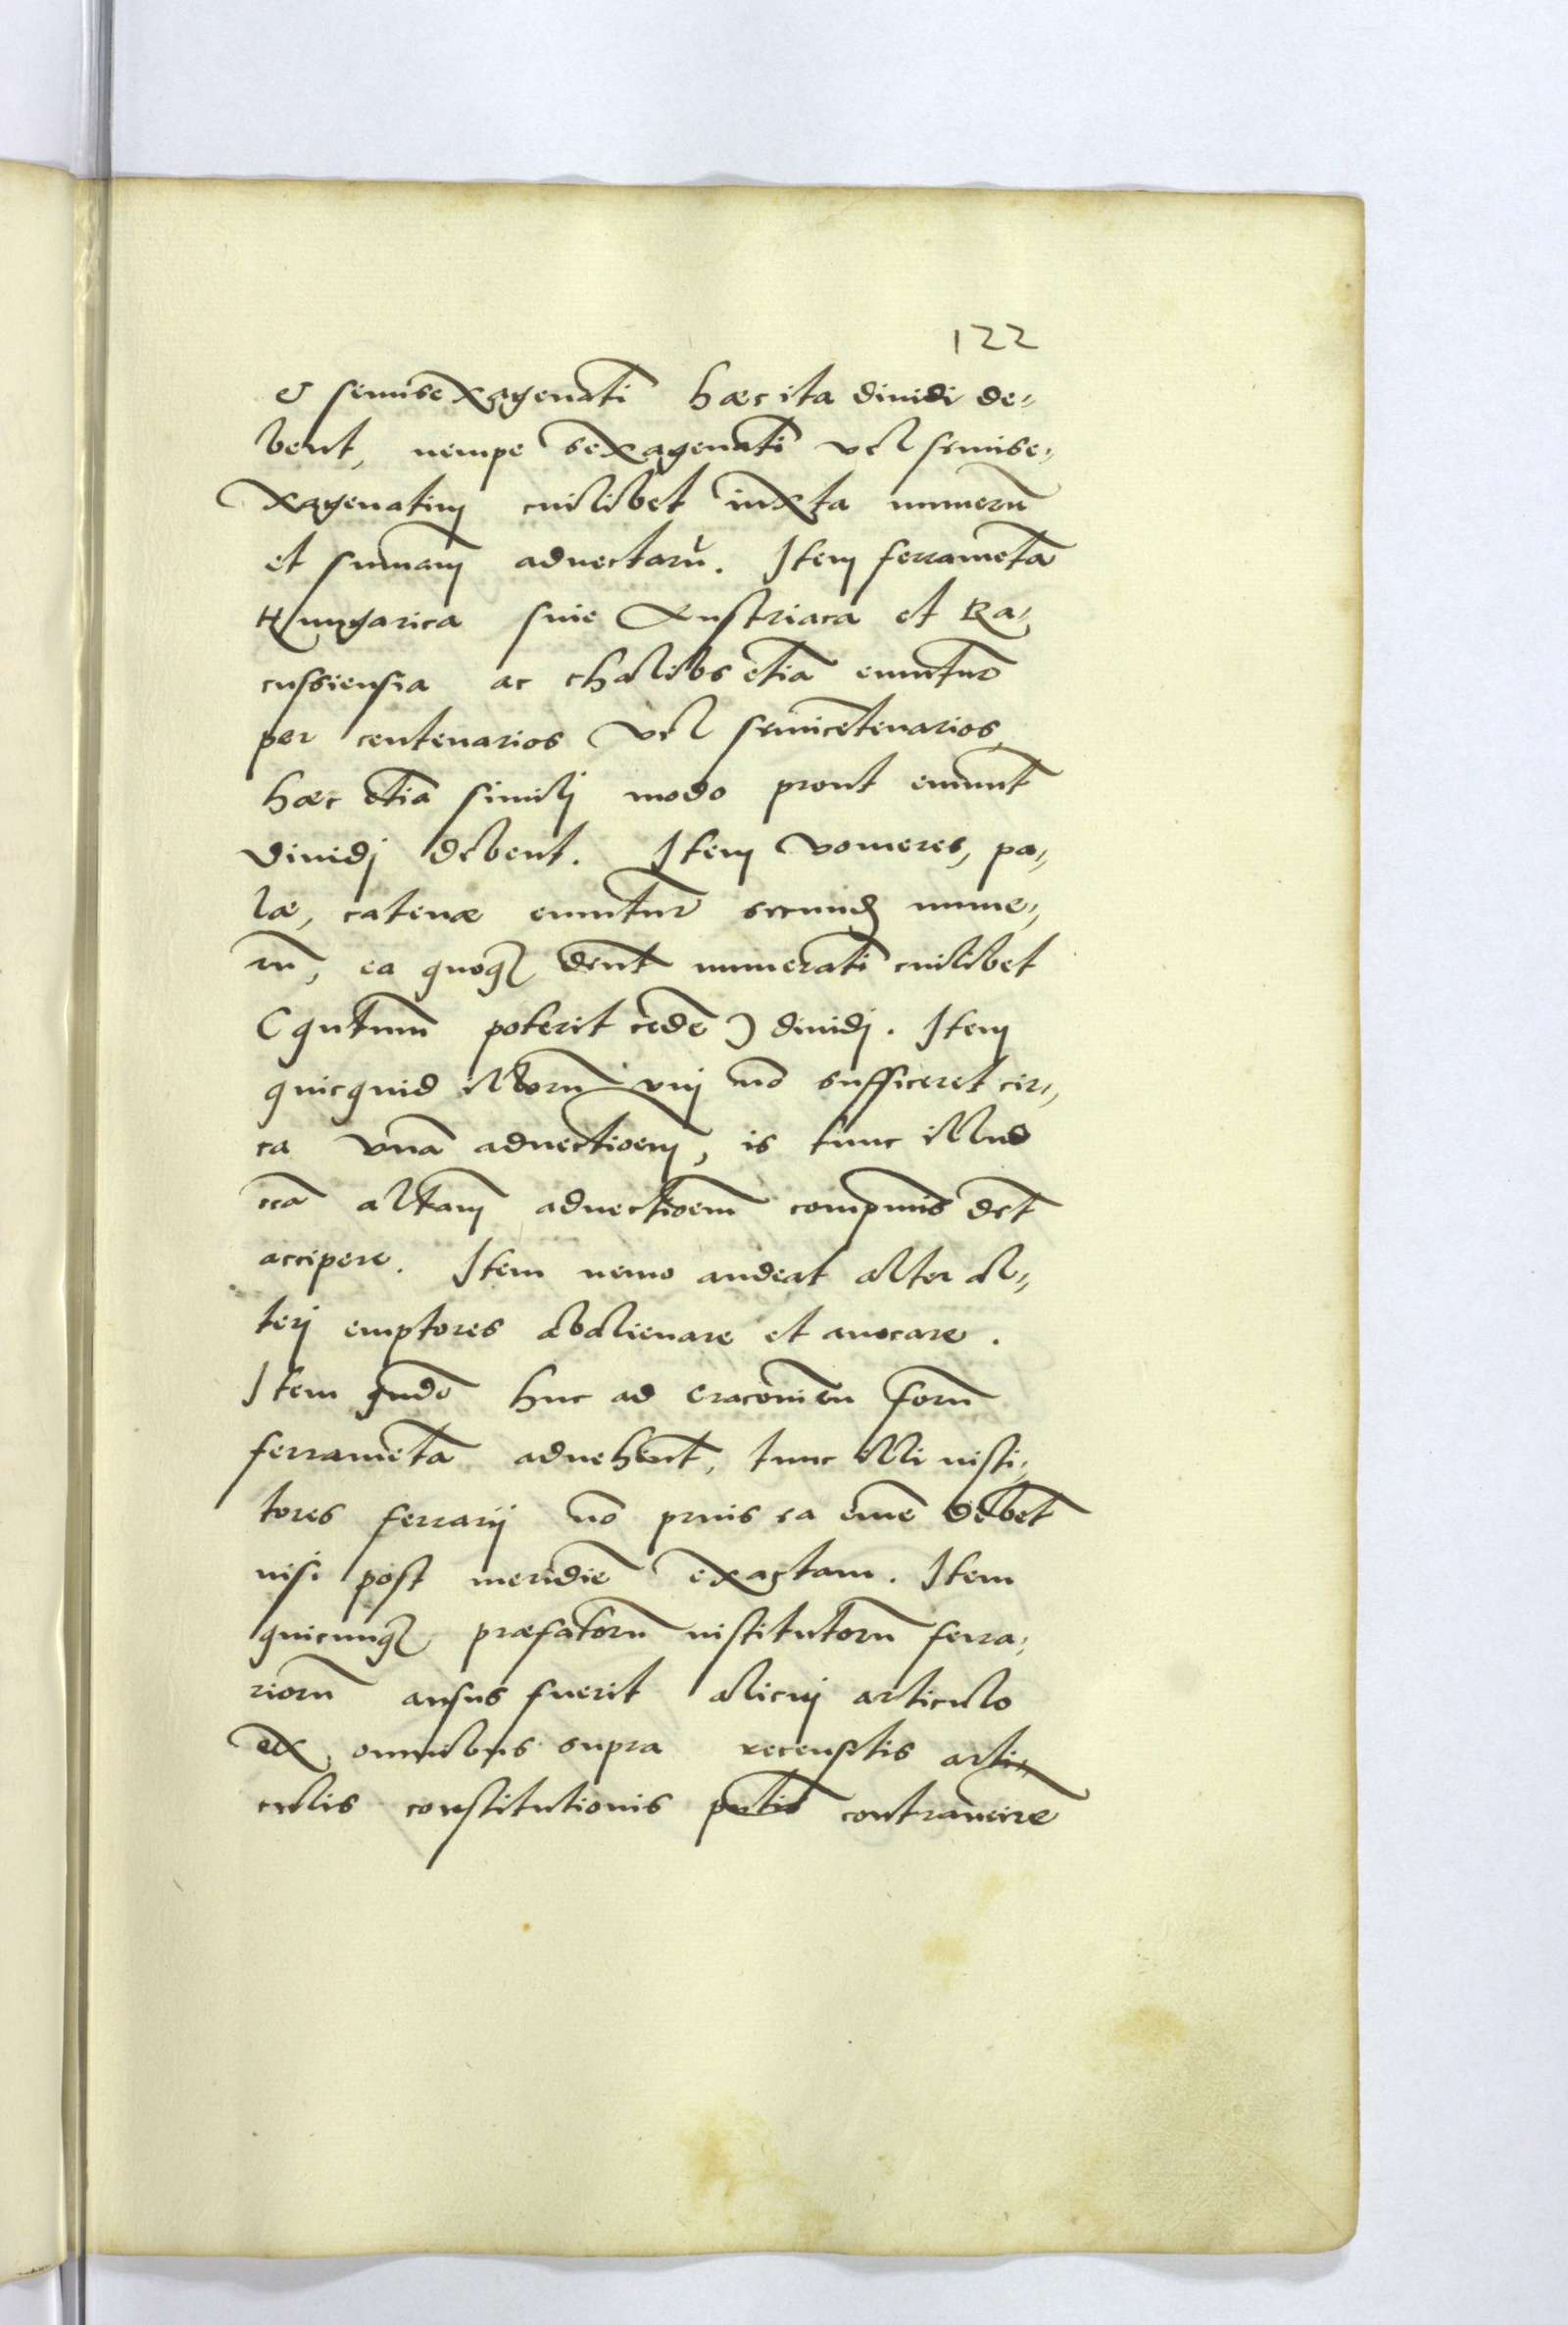 122
et semisexagenatī hæc ita dividi de„
bent, nempe sexagenatī vel semise„
xagenatim cuilibet iuxta numerū
et sumam advectarŭ. Item ferrametā
Hungarica sive Austriaca et Ra„
cussiensia ac chalibs etiā emuntur
per centenarios vel semicētenarios,
hæc etiā simili modo prout emunt
dividj debent. Item vomeres, pa„
læ, catenæ emuntur secund nume„
rū, ea quoq dent numeratī cuilibet
(qutnm poterit cedē) dividj. Item
quicquid illorū vni nō sufficeret cir„
ca vnā advectioem, is tunc illud
cca altam advectioem comprimis det
accipere. Item nemo audeat alter al„
terj emptores abalienare et avocare.
Item qndo huc ad cracovien forū
ferrametā advehent, tunc illi insti„
tores ferrarij nō prius ea emē debet
nisi post meridiē exactam. Item
quicunq præfatorū institutorū ferra„
riorū ausus fuerit alicuj articulo
ex omnibus supra recensitis arti„
culis constitutionis pntis contravenire